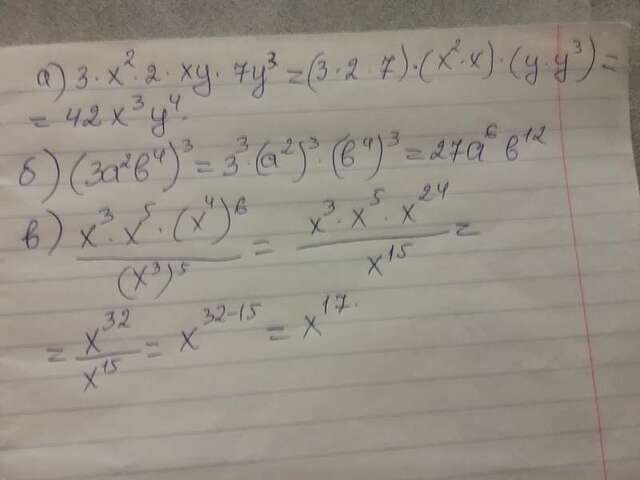 а) 3·x²·2·xy·7y³=(3·2·7)·(x²·x)·(y·y³)=
=42x³y⁴.
б) (3a²b⁴)³=3³·(a²)³·(b⁴)³=27a⁶b¹²
в) x³·x⁵·(x⁴)⁶/(x³)⁵ = x³·x⁵·x²⁴/x¹⁵ =
= x³²/x¹⁵ = x³²⁻¹⁵ = x¹⁷.